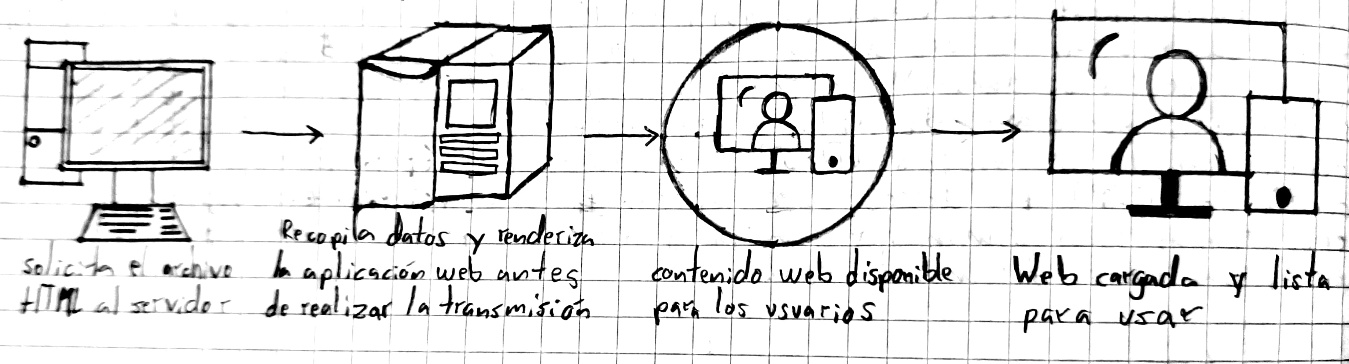 solicita el archivo
HTML al servidor
Recopila datos y renderiza
la aplicación web antes
de realizar la transmisión
contenido web disponible
para los usuarios
Web cargada y lista
para usar